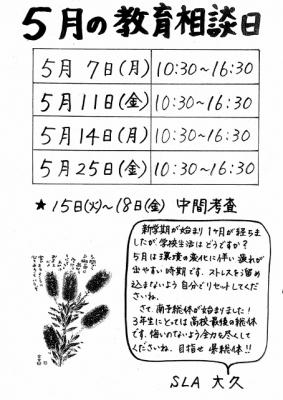 5月の教育相談日
5月 7日(月) 10:30~16:30
5月11日(金) 10:30~16:30
5月14日(月) 10:30~16:30
5月25日(金) 10:30~16:30
★15日(火)~18日(金) 中間考査
新学期が始まり1ヶ月が経ちま
したが、学校生活はどうですか?
5月は環境の変化に伴い疲れが
出やすい時期です。ストレスを溜め
込まないよう自分でリセットしてくだ
さいね。
さて、南予総体が始まりました!
3年生にとっては高校最後の総体
です。悔いのないよう全力を尽くして
くださいね。目指せ県総体!!
SLA 大久